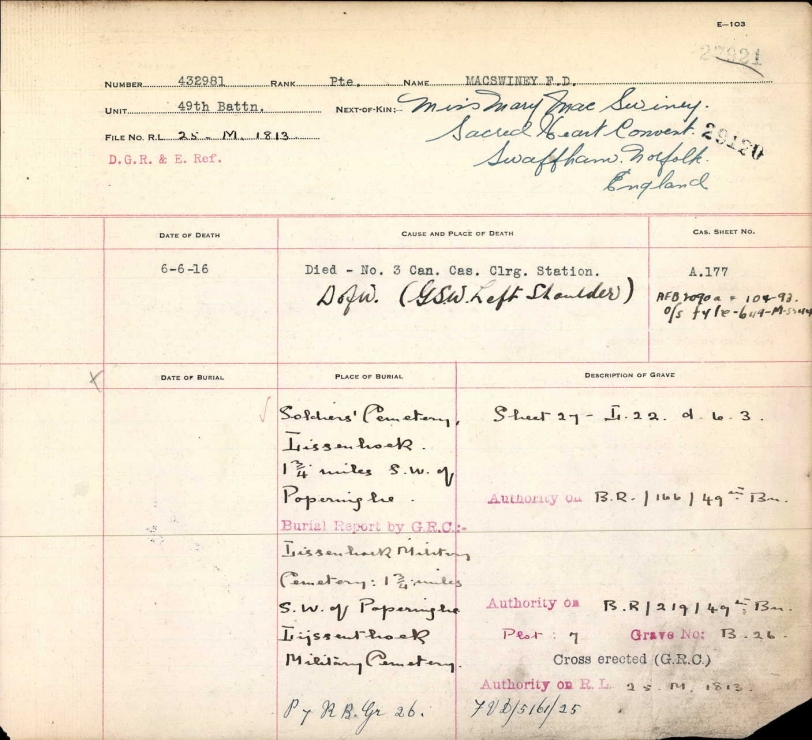 E-103
27921
NUMBER 432981 RANK Pte. NAME MACSWINEY F.D.
UNIT 49th Battn. NEXT-OF-KIN:- Miss Mary Mac Swiney.
Sacred Heart Convent.
29120
FILE NO. R.L. 25. M. 1813.
Swaffham. Norfolk.
D.G.R. & E. Ref.
England
DATE OF DEATH CAUSE AND PLACE OF DEATH CAS. SHEET NO.
6-6-16 Died - No. 3 Can. Cas. Clrg. Station. A.177
D of W. (G.S.W. Left Shoulder)
DATE OF BURIAL PLACE OF BURIAL DESCRIPTION OF GRAVE
Soldiers' Cemetery, Sheet 27 - L. 22. d. 6. 3.
Lissenhoek.
1 3/4 miles S.W. of
Poperinghe. Authority on B.R. / 166 / 49th Bn.
Burial Report by G.R.C.:-
Lissenhoek Military
Cemetery: 1 3/4 miles
S.W. of Poperinghe Authority on B.R / 219 / 49th Bn.
Lijssenthoek Plot: 7 Grave No: B. 26.
Military Cemetery. Cross erected (G.R.C.)
Authority on R.L. 25. M. 1813.
P 7 R B. Gr 26. 7VD/5161/25